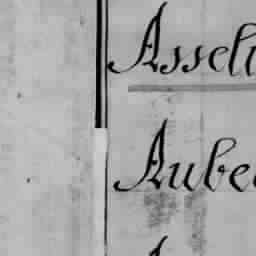 Asseli
Aube